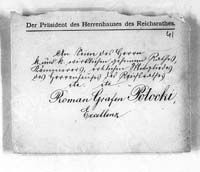 Der Präsident des Herrenhauses des Reichsrathes.
41
des Herrn
k. und k. wirklichen geheimen Rathes,
Kämmerers, erblichen Mitgliedes
des Herrenhauses des Reichsrathes
etc. etc.
Roman Grafen Potocki,
Excellenz